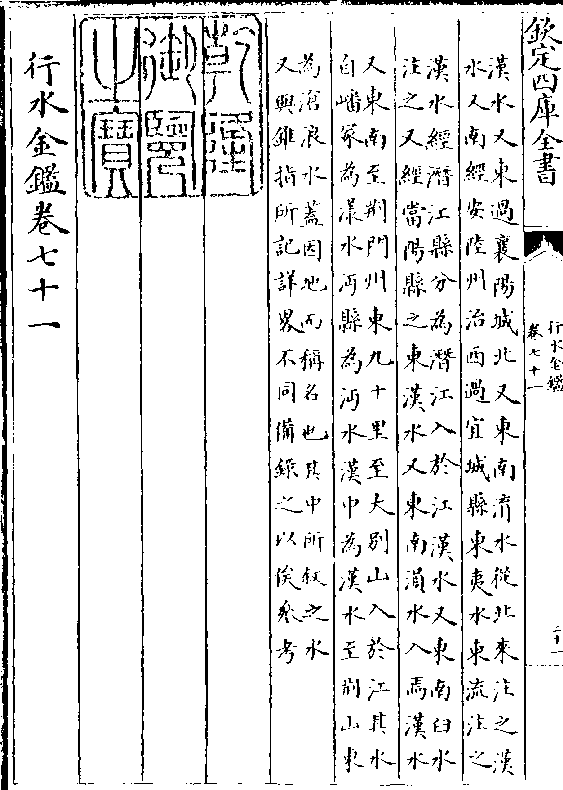 欽定四庫全書
行水金鑑
卷七十一
二十一
漢水又東過襄陽城北又東南淯水從北來注之漢
水又南經安陸州治西過宜城縣東夷水東流注之
漢水經潛江縣分為潛江入於江漢水又東南臼水
注之又經當陽縣之東漢水又東南溳水入焉漢水
又東南至荊門州東九十里至大別山入於江其水
自嶓冢為漾水沔縣為沔水漢中為漢水至荊山東
為滄浪水蓋因地而稱名也其中所敘之水
又與錐指所記詳畧不同備錄之以俟參考
乾隆
御覽
之寶
行水金鑑卷七十一